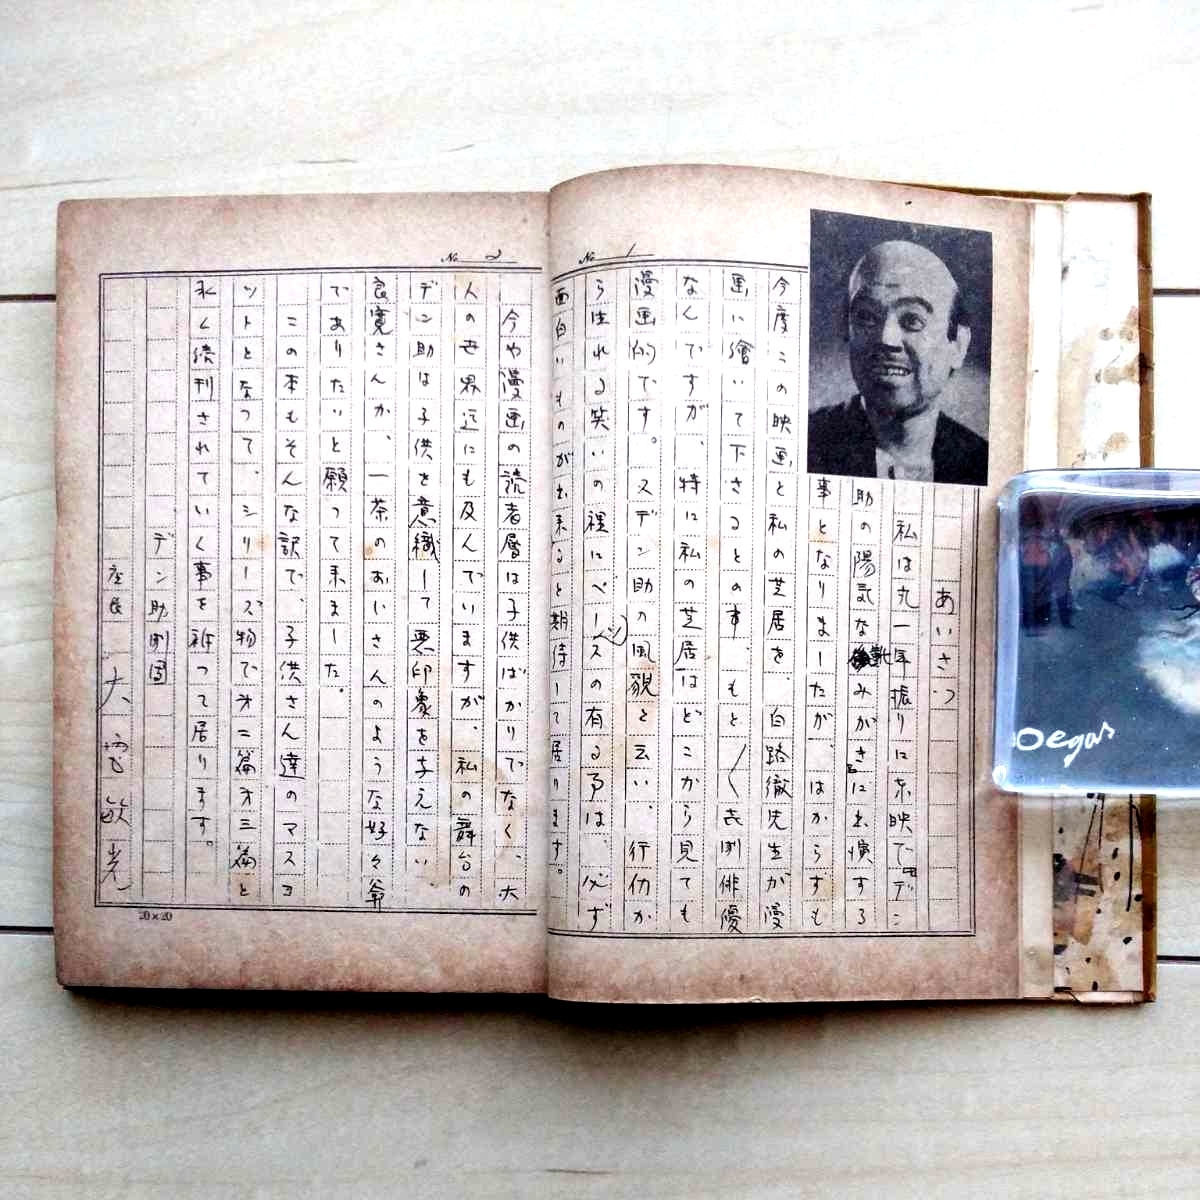 No. 1
あいさつ
私は丸一年振りに東映でデン
助の陽気なみがきに出演する
事となりましたが、はからずも
今度この映画と私の芝居を、白路徹先生が漫
画に繪いて下さるとの事、もと〳〵喜劇俳優
なんですが、特に私の芝居はどこから見ても
漫画的です。スデン助の風貌と云い、行仂か
ら生れる笑いの裡にペーソスの有る事は、必ず
面白いものが出来ると期待して居ります。
No. 2
今や漫画の読者層は子供ばかりでなく、大
人の世界迄にも及んでいますが、私の舞台の
デン助は子供を意識して悪印象を与えない
良寛さんか、一茶のおじさんのような好々爺
でありたいと願って来ました。
この本もそんな訳で、子供さん達のマスコ
ットとなって、シリーズ物で才二篇才三篇と
永く続刊されていく事を祈って居ります。
デン助劇団
座長 大宮敏光
20×20
Degas